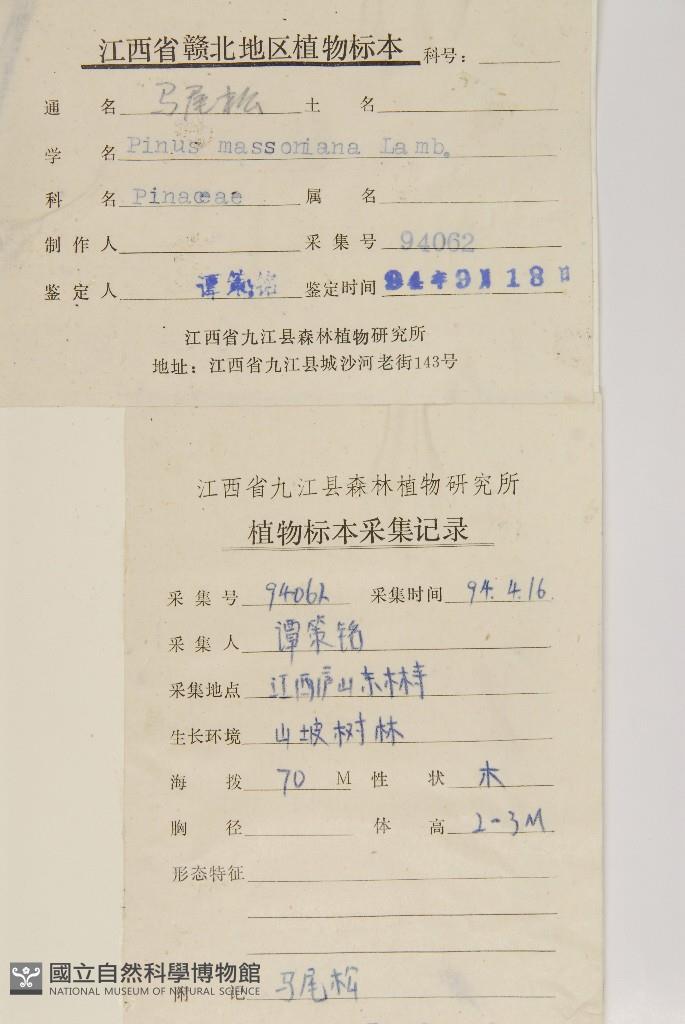 江西省赣北地区植物标本 科号：
通名 马尾松 土名
学名 Pinus massoniana Lamb.
科名 Pinaceae 属名
制作人 采集号 94062
鉴定人 谭策铭 鉴定时间 94年9月18日
江西省九江县森林植物研究所
地址：江西省九江县城沙河老街143号
江西省九江县森林植物研究所
植物标本采集记录
采集号 94062 采集时间 94.4.16.
采集人 谭策铭
采集地点 江西庐山东林寺
生长环境 山坡树林
海拨 70 M 性状 木
胸径 体高 2-3M
形态特征
附记 马尾松
國立自然科學博物館
NATIONAL MUSEUM OF NATURAL SCIENCE